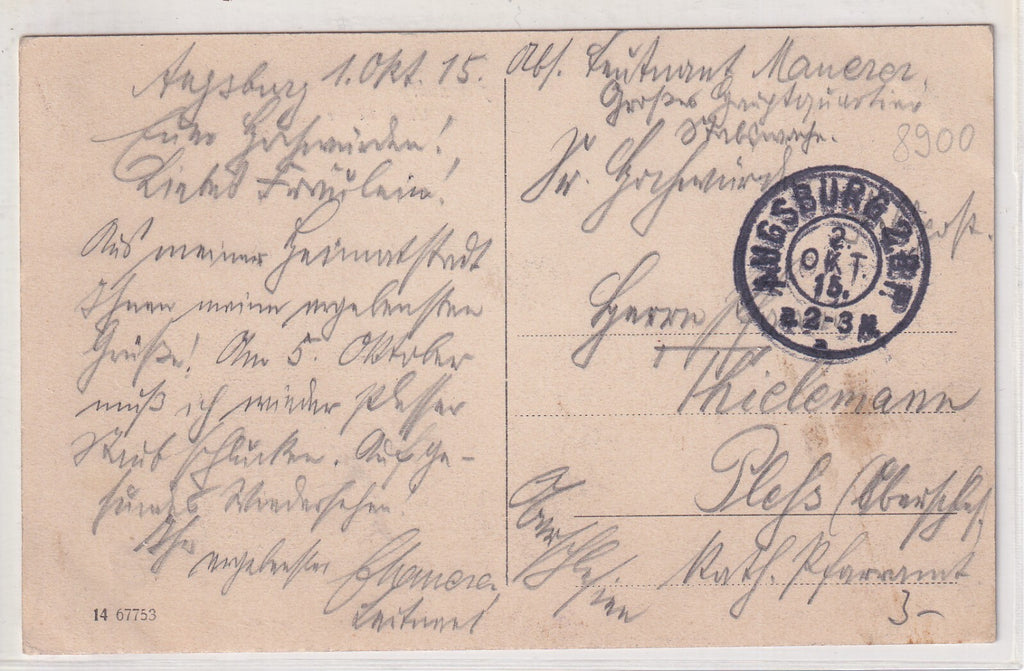 Augsburg 1. Okt. 15.
Euer Hochwürden!
Liebes Fräulein!
Aus meiner Heimatstadt
Ihnen meine ergebensten
Grüße! Am 5. Oktober
muß ich wieder Plesser
Staub schlucken. Auf Ge-
sundes Wiedersehen!
Ihr ergebenster
Leutnant
14 67753
Abs. Leutnant Mauerer,
Großes Hauptquartier
Stabswache.
8900
Sr. Hochwürd
AUGSBURG 2
2.
OKT.
15.
2-3 N.
Herrn
Thielemann
Pless (Oberschles.
Oberschlesien
Kath. Pfarramt
3-